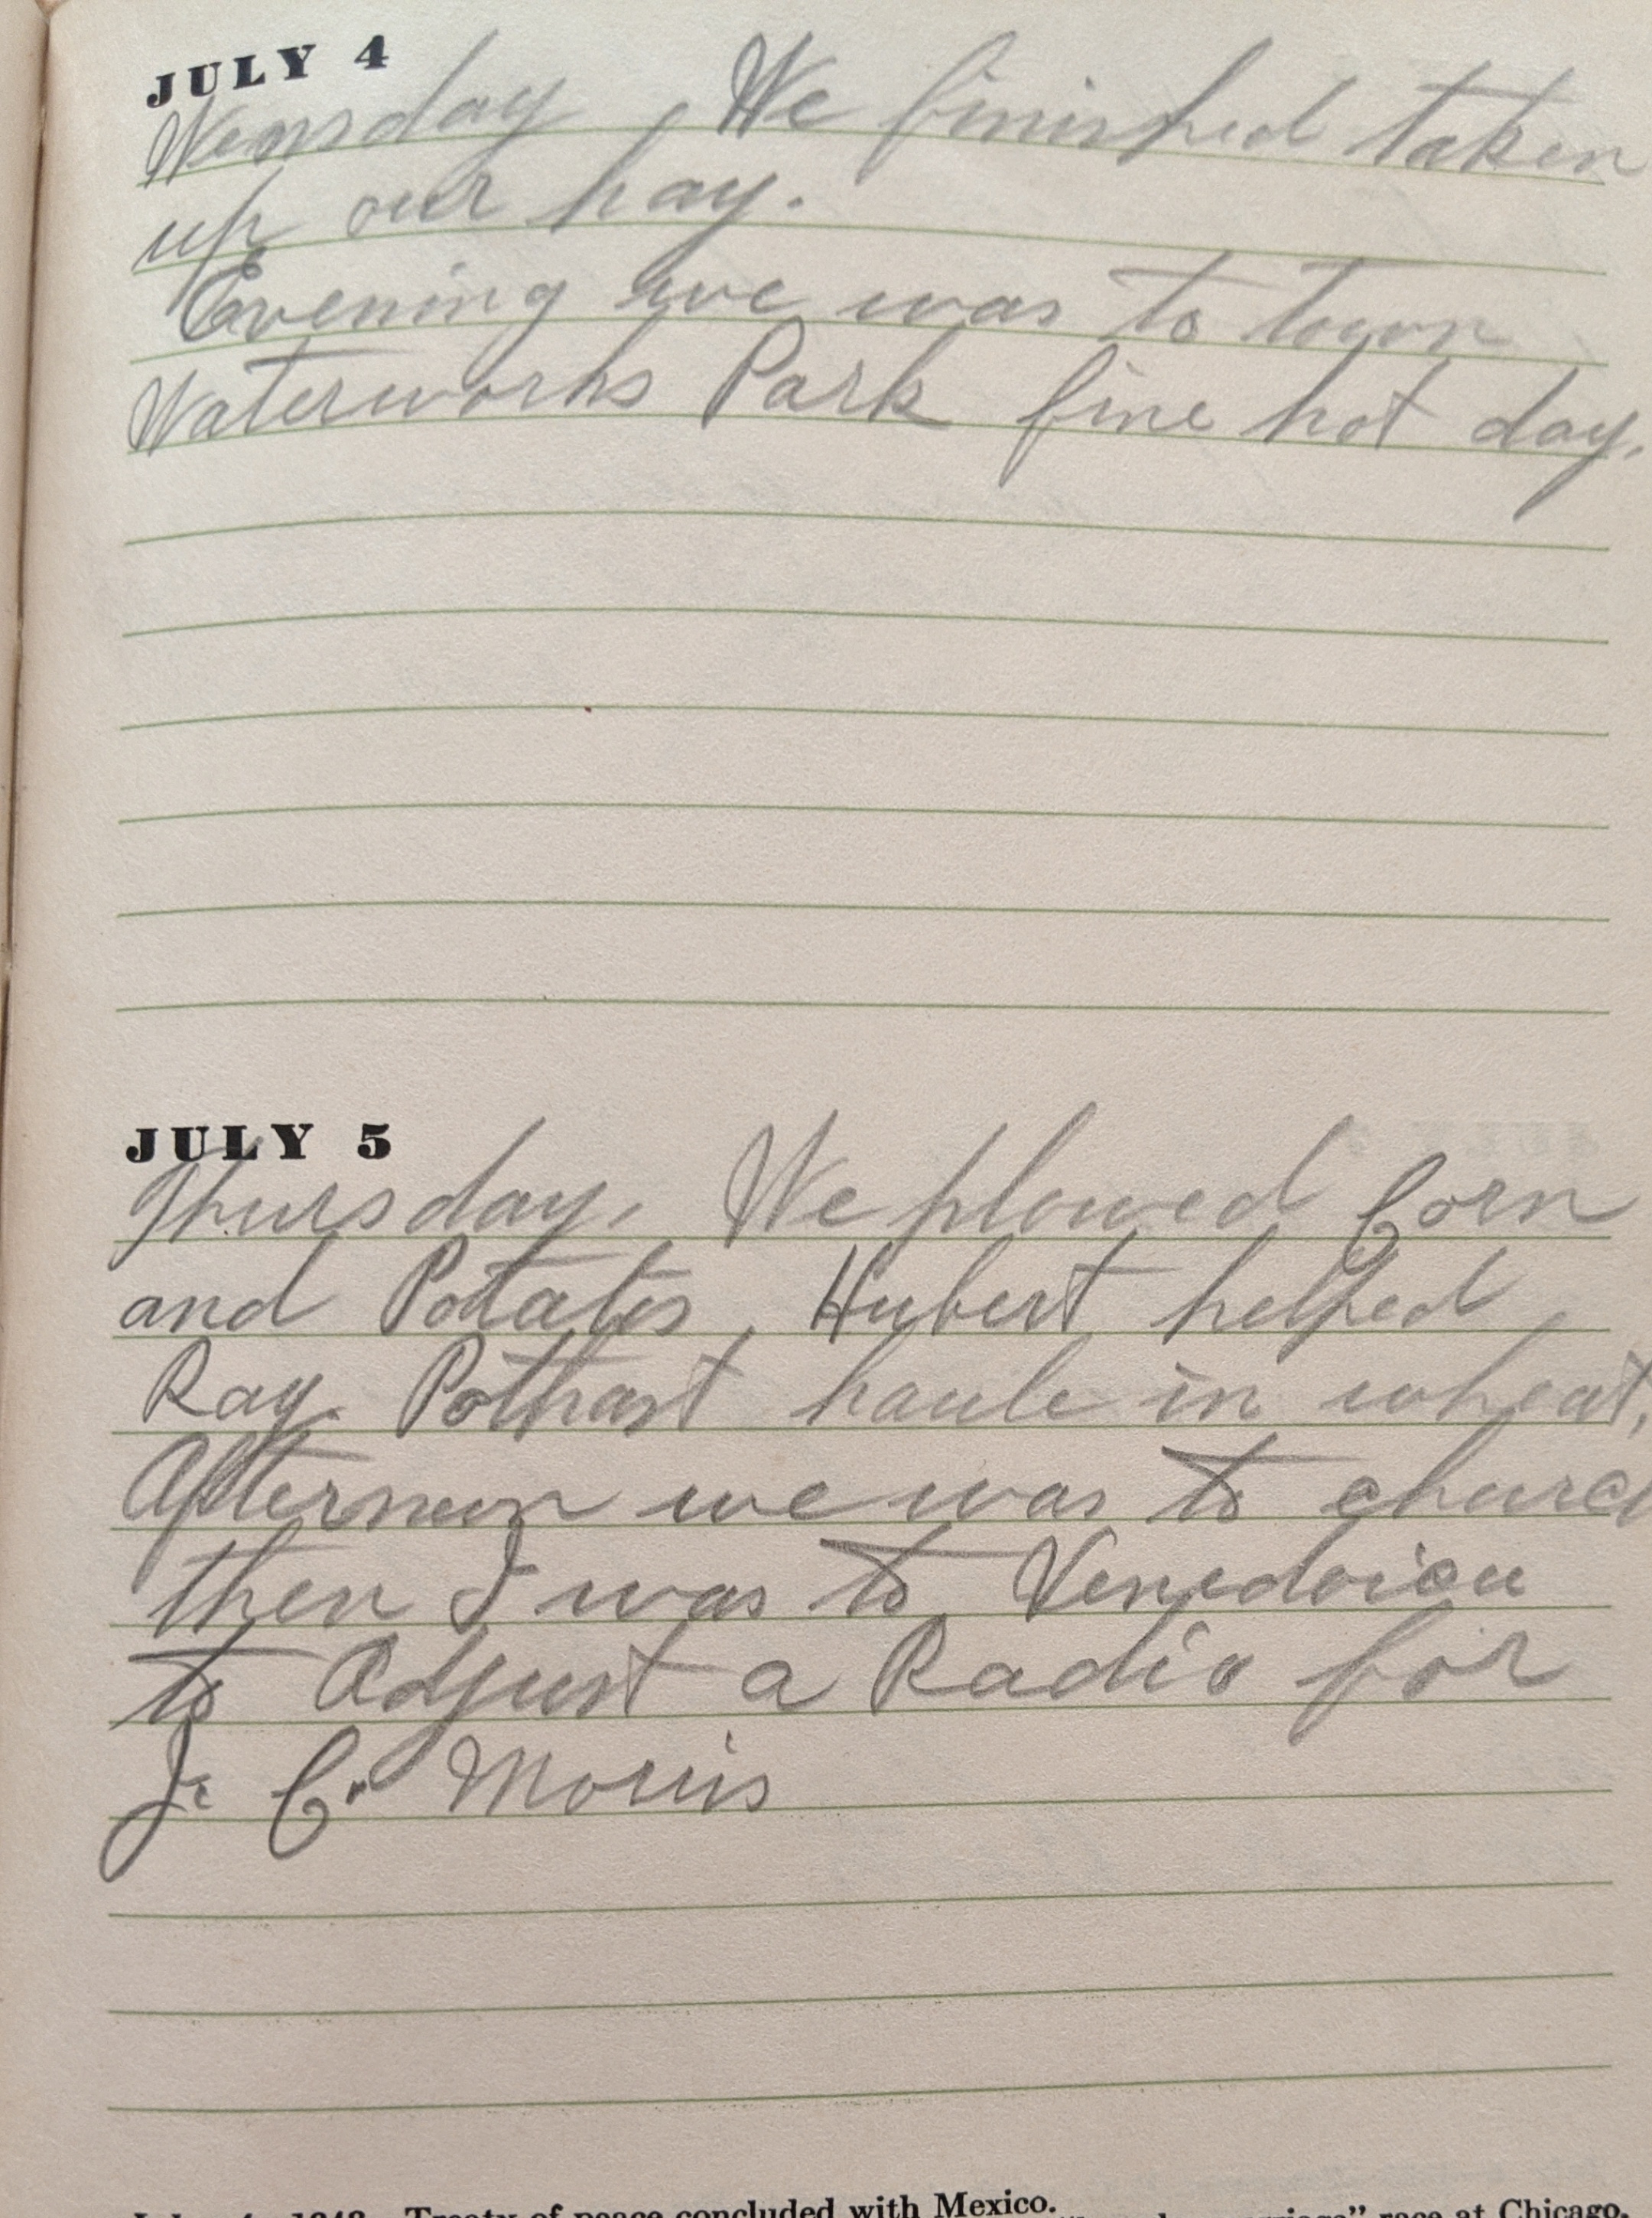 JULY 4
Wensday, We finished taken
up our hay.
Evening we was to town
Waterworks Park fine hot day.
JULY 5
Thursday, We plowed Corn
and Potatos, Hubert helped
Ray. Pothast haule in wheat,
Afternoon we was to church
then I was to Venedoicu
to Adjust a Radio for
J. C. Morris
Treaty of peace concluded with Mexico.
race at Chicago.